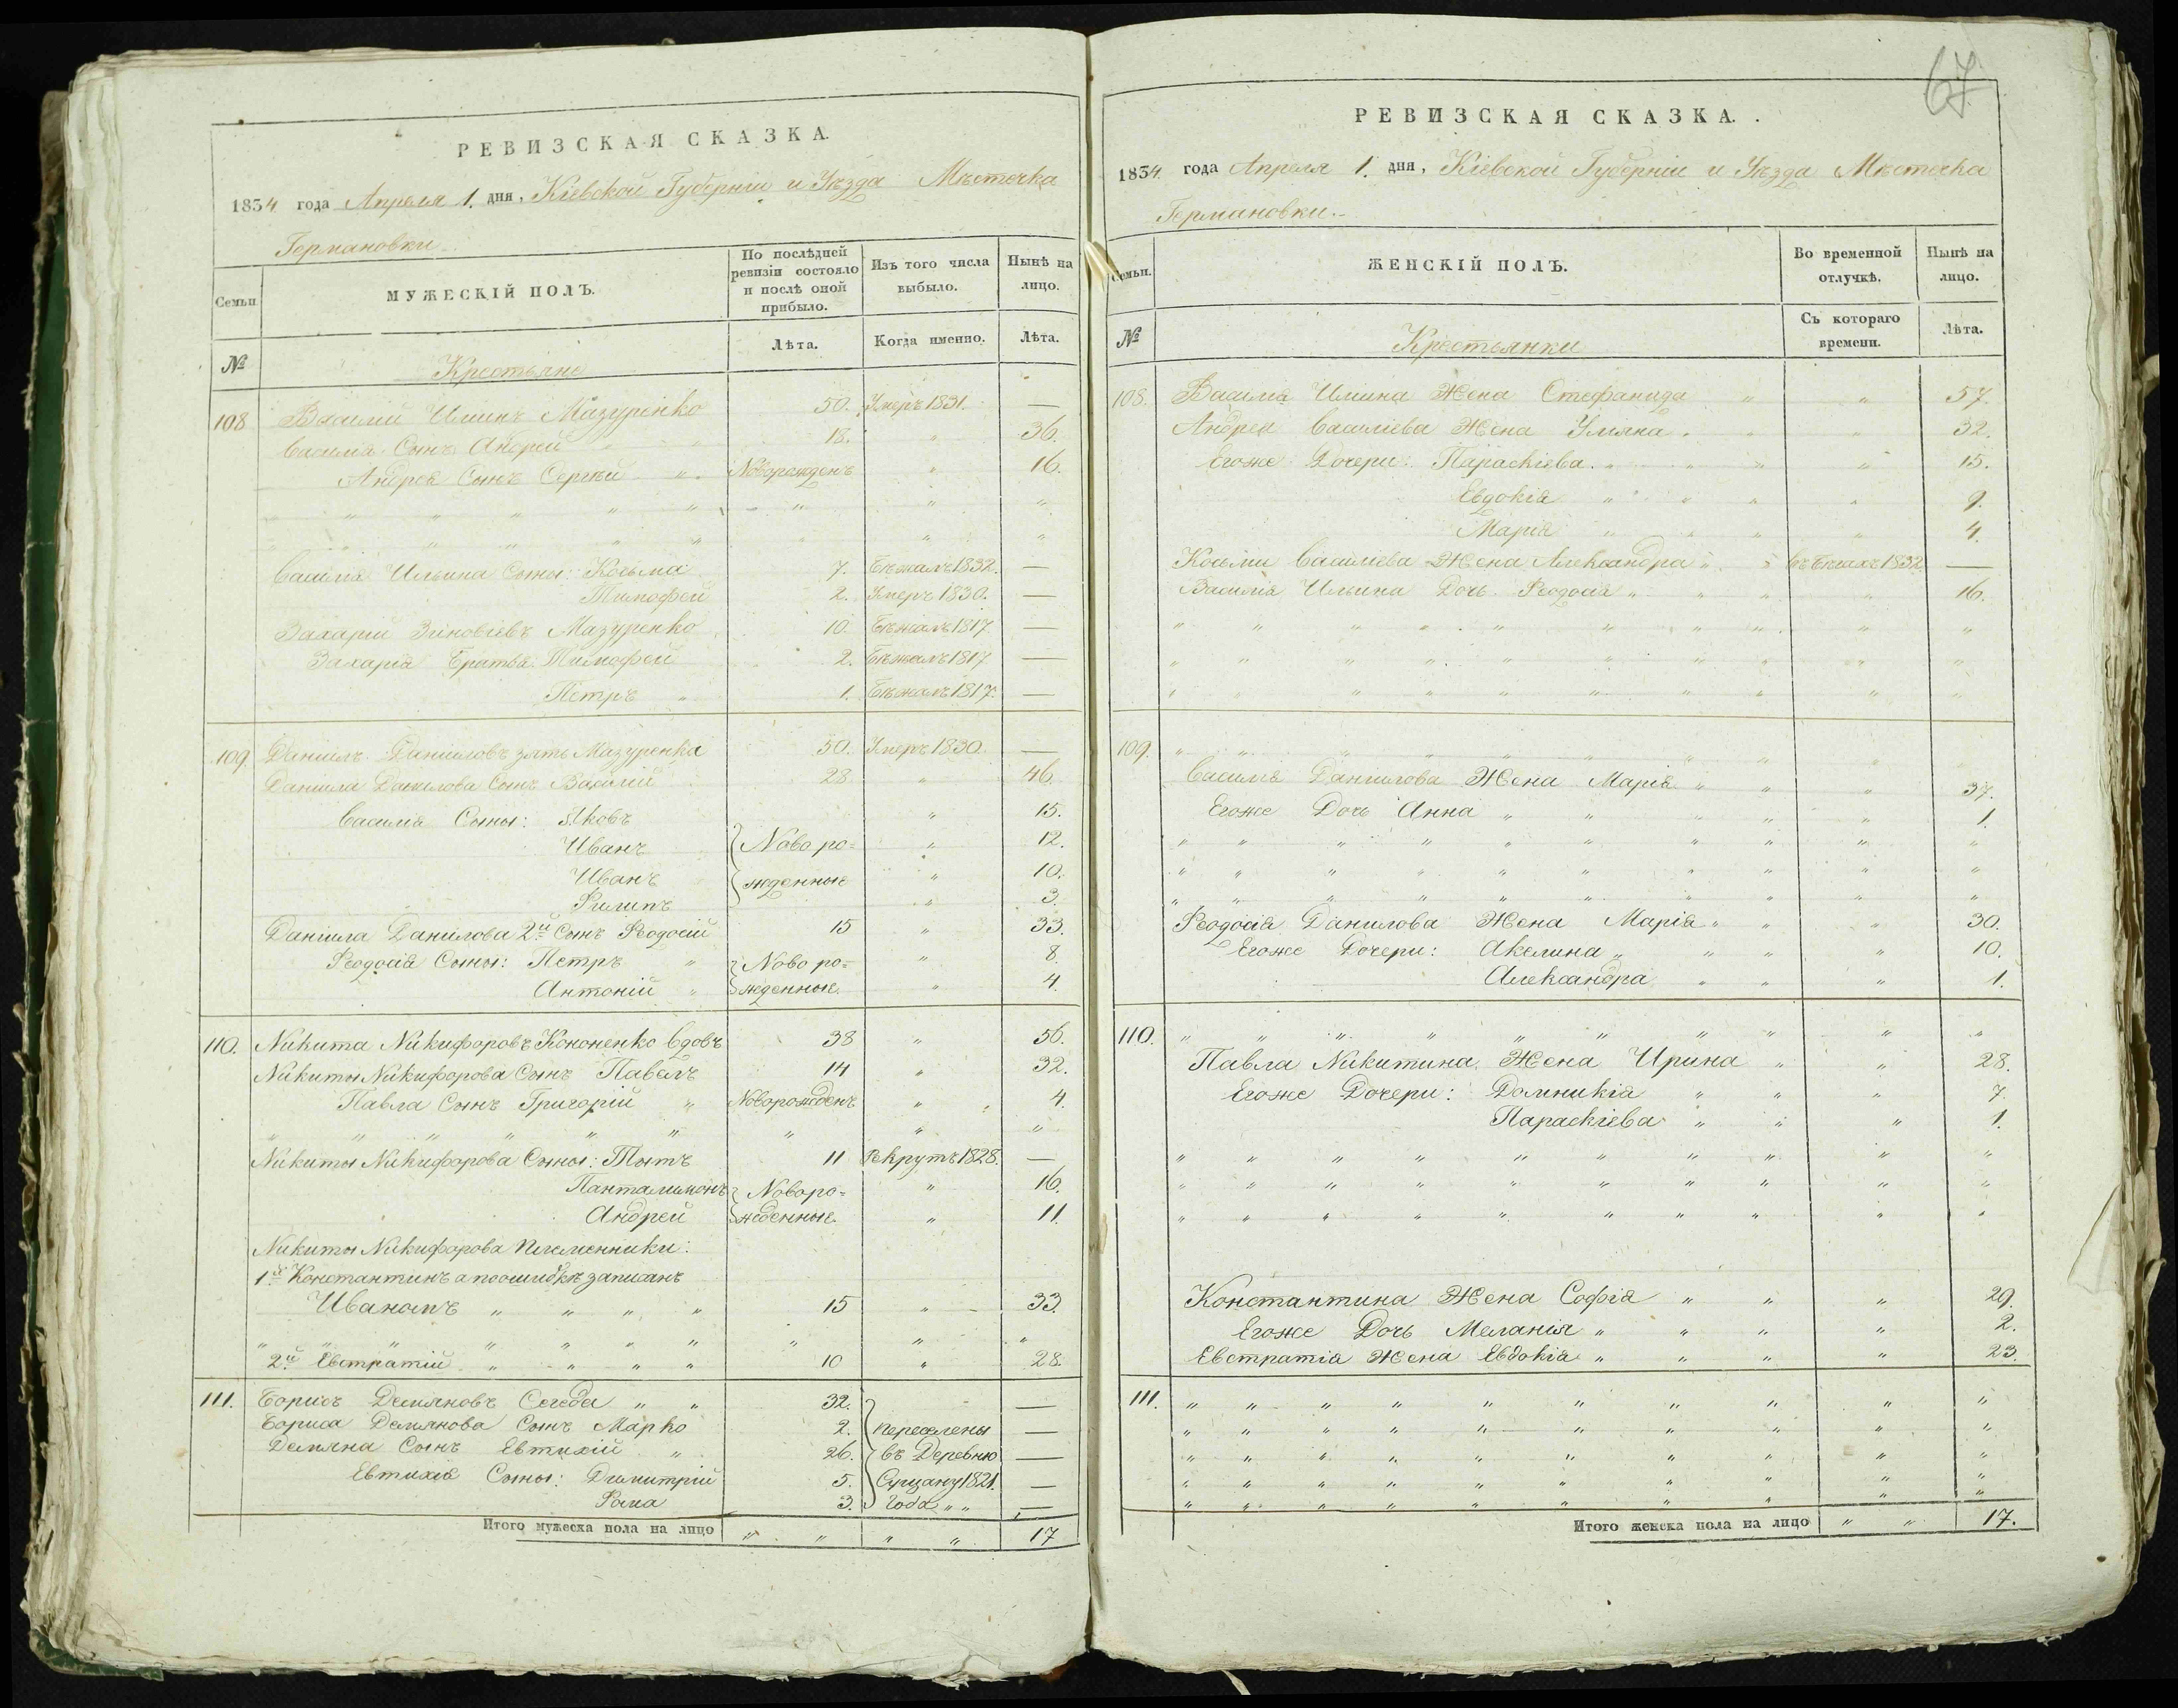 67
РЕВИЗСКАЯ СКАЗКА.
1834 года Апреля 1. дня, Кіевской Губерніи и Уѣзда Мѣстечка
Германовки
Семьи
МУЖЕСКІЙ ПОЛЪ.
По послѣдней ревизіи состояло и послѣ оной прибыло.
Изъ того числа выбыло.
Нынѣ на лицо.
№
Крестьяне
Лѣта.
Когда именно.
Лѣта.
108 Василій Ильинъ Мазуренко 50. Умеръ 1831. —
Василія Сынъ Андрей 18. " 36.
Андрея Сынъ Сергѣй " Новорожденъ " 16.
" " " " " " " " "
" " " " " " " " "
Василія Ильина Сыны: Козьма 7. Бѣжалъ 1832. —
Тимофей 2. Умеръ 1830. —
Захарій Зѣновіевъ Мазуренко 10. Бѣжалъ 1817 —
Захарія Братья Тимофей 2. Бѣжалъ 1817 —
Петръ " 1. Бѣжалъ 1817. —
109. Даніилъ Даниловъ зять Мазуренка 50. Умеръ 1830. —
Даніила Данилова Сынъ Василій 28 " 46.
Василія Сыны: Яковъ " 15.
Иванъ Ново ро= " 12.
Иванъ жденные " 10.
Филипъ " 3.
Даніила Данилова 2й Сынъ Феодосій 15 " 33.
Феодосія Сыны: Петръ " Ново ро= " 8.
Антоній " жденные. " 4.
110. Никита Никифоровъ Кононенко вдовъ 38 " 56.
Никиты Никифорова Сынъ Павелъ 14 " 32.
Павла Сынъ Григорій " Новорожденъ " 4.
" " " " " " " " "
Никиты Никифорова Сыны: Тытъ 11 Рекрутъ 1828. —
Панталимонъ Новоро= " 16.
Андрей жденные. " 11.
Никиты Никифорова племенники:
1й Константинъ а поошибкѣ записанъ
Иваномъ " " " " 15 " 33.
" " " " " " " " "
2й Евстратій " " " " 10 " 28.
111. Борисъ Демяновъ Сегеда " " 32. —
Бориса Демянова Сынъ Марко 2. переселены —
Демяна Сынъ Евтихій " 26. въ Деревню —
Евтихія Сыны: Димитрій 5. 1821. —
Фома 3. Года " " —
Итого мужеска пола на лицо " " " " 17
РЕВИЗСКАЯ СКАЗКА.
1834. года Апреля 1. дня, Кіевской Губерніи и Уѣзда Мѣстечка
Германовки.
Семьи.
ЖЕНСКІЙ ПОЛЪ.
Во временной отлучкѣ.
Нынѣ на лицо.
№
Крестьянки
Съ котораго времени.
Лѣта.
108. Василія Ильина Жена Стефанида " " 57.
Андрея Василіева Жена Уляна " " " 32.
Егоже Дочери: Параскіева. " " " " 15.
Евдокія " " " " 9.
Марія " " " " 4.
Козьми Василіева Жена Александра " " въ Бѣгахъ 1832 —
Василія Ильина Дочь Феодосія " " " " 16.
" " " " " " " " " "
" " " " " " " " " "
" " " " " " " " " "
109. " " " " " " " " " "
Василія Даніилова Жена Марія " " " 37.
Егоже Дочь Анна " " " " " 1.
" " " " " " " " " "
" " " " " " " " " "
" " " " " " " " " "
Феодосія Данилова Жена Марія " " " 30.
Егоже Дочери: Акелина " " " " 10.
Александра " " " 1.
110. " " " " " " " " " "
Павла Никитина Жена Ирина " " 28.
Егоже Дочери: Домникія " " " 7.
Параскіева " " " 1.
" " " " " " " " " "
" " " " " " " " " "
" " " " " " " " " "
Константина Жена Софія " " " 29.
Егоже Дочь Меланія " " " " 2.
Евстратія Жена Евдокія " " " " 23.
111. " " " " " " " " " "
" " " " " " " " " "
" " " " " " " " " "
" " " " " " " " " "
" " " " " " " " " "
Итого женска пола на лицо " " 17.